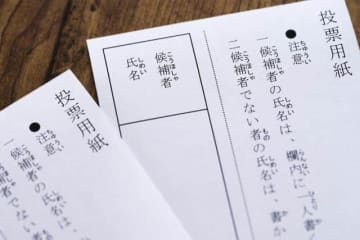 投票用紙
●注意
一 候補者の氏名は、欄内に一人書
二 候補者でない者の氏名は、書か
候補者
氏名
投票用紙
●注意
候補者の氏
候補者でな